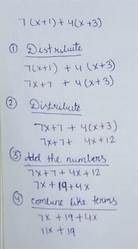 7(x+1)+4(x+3)
① Distribute
7(x+1) + 4(x+3)
7x+7 + 4(x+3)
② Distribute
7x+7 + 4(x+3)
7x+7+ 4x+12
③ Add the numbers
7x+7+4x+12
7x+19+4x
④ combine like terms
7x+19+4x
11x+19